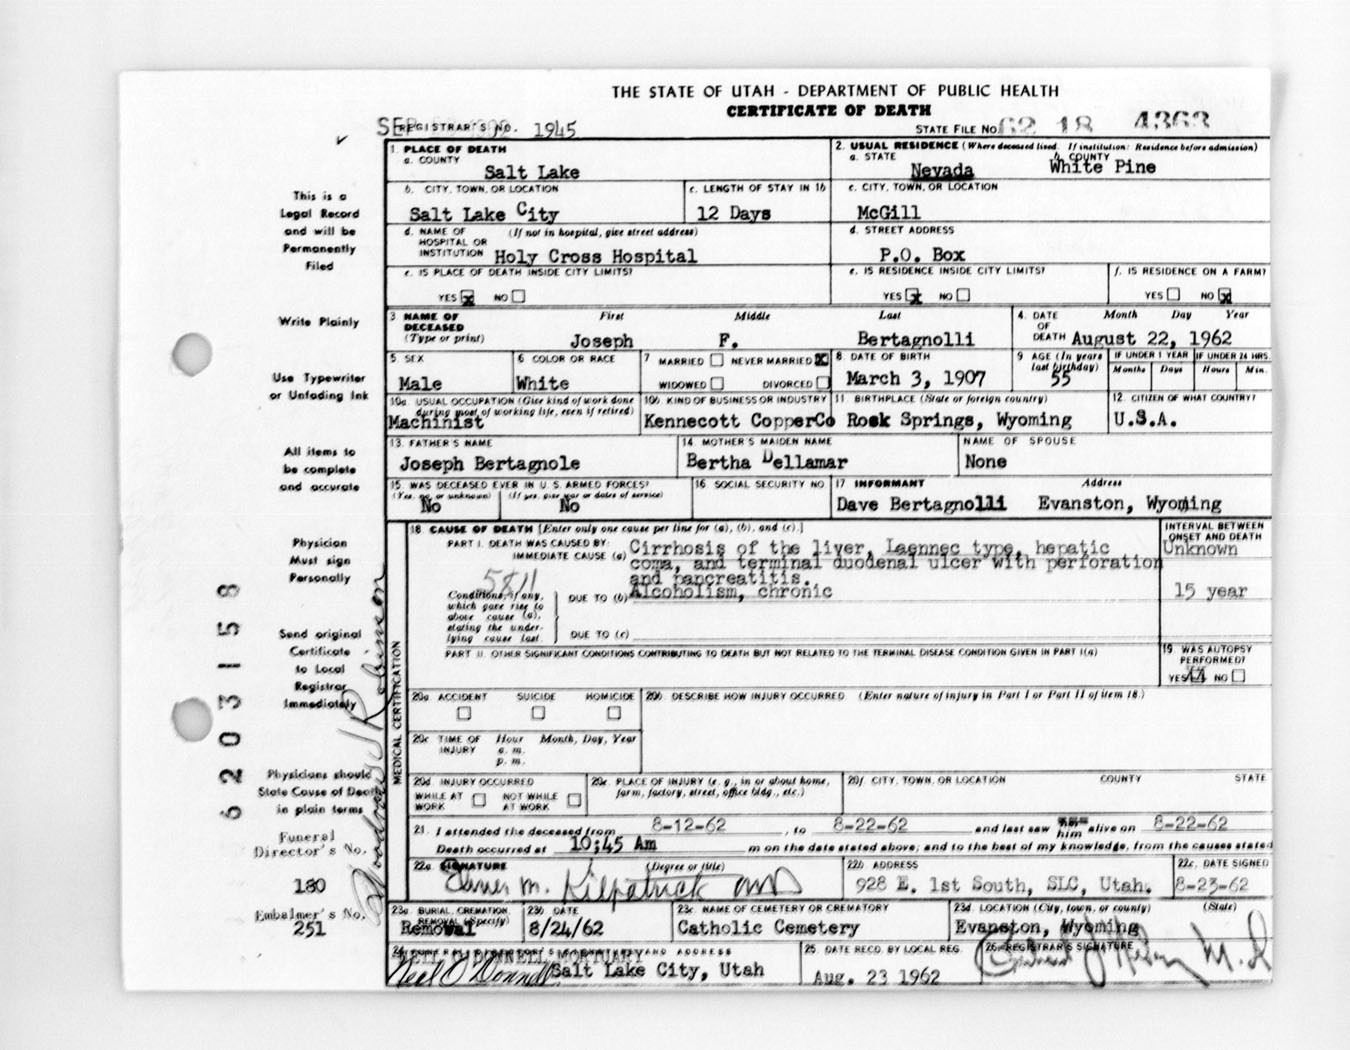 THE STATE OF UTAH - DEPARTMENT OF PUBLIC HEALTH
CERTIFICATE OF DEATH
SEP
REGISTRAR'S NO. 1945
STATE FILE NO. 62 18 4363
This is a
Legal Record
and will be
Permanently
Filed
Write Plainly
Use Typewriter
or Unfading Ink
All items to
be complete
and accurate
Physician
Must sign
Personally
Send original
Certificate
to Local
Registrar
Immediately
Physicians should
State Cause of Death
in plain terms
Funeral
Director's No.
180
Embalmer's No.
251
6203158
Woodrow J Robinson
MEDICAL CERTIFICATION
1. PLACE OF DEATH
a. COUNTY
Salt Lake
2. USUAL RESIDENCE (Where deceased lived. If institution: Residence before admission)
a. STATE Nevada b. COUNTY White Pine
b. CITY, TOWN, OR LOCATION
Salt Lake City
c. LENGTH OF STAY IN 1b
12 Days
c. CITY, TOWN, OR LOCATION
McGill
d. NAME OF HOSPITAL OR INSTITUTION (If not in hospital, give street address)
Holy Cross Hospital
d. STREET ADDRESS
P.O. Box
e. IS PLACE OF DEATH INSIDE CITY LIMITS?
YES x NO
e. IS RESIDENCE INSIDE CITY LIMITS?
YES x NO
f. IS RESIDENCE ON A FARM?
YES NO x
3 NAME OF DECEASED (Type or print)
First Middle Last
Joseph F. Bertagnolli
4. DATE OF DEATH Month Day Year
August 22, 1962
5. SEX
Male
6 COLOR OR RACE
White
7 MARRIED NEVER MARRIED x
WIDOWED DIVORCED
8. DATE OF BIRTH
March 3, 1907
9 AGE (In years last birthday)
55
IF UNDER 1 YEAR
Months Days
IF UNDER 24 HRS.
Hours Min.
10a. USUAL OCCUPATION (Give kind of work done during most of working life, even if retired)
Machinist
10b. KIND OF BUSINESS OR INDUSTRY
Kennecott CopperCo
11. BIRTHPLACE (State or foreign country)
Rock Springs, Wyoming
12. CITIZEN OF WHAT COUNTRY?
U.S.A.
13. FATHER'S NAME
Joseph Bertagnole
14. MOTHER'S MAIDEN NAME
Bertha Dellamar
NAME OF SPOUSE
None
15. WAS DECEASED EVER IN U.S. ARMED FORCES?
(Yes, no, or unknown) (If yes, give war or dates of service)
No No
16 SOCIAL SECURITY NO
17 INFORMANT Address
Dave Bertagnolli Evanston, Wyoming
18 CAUSE OF DEATH [Enter only one cause per line for (a), (b), and (c).]
PART I. DEATH WAS CAUSED BY:
IMMEDIATE CAUSE (a) Cirrhosis of the liver, Laennec type, hepatic
coma, and terminal duodenal ulcer with perforation
and pancreatitis.
INTERVAL BETWEEN ONSET AND DEATH
Unknown
5811
Conditions, if any, which gave rise to above cause (a), stating the underlying cause last.
DUE TO (b) Alcoholism, chronic
15 year
DUE TO (c)
PART II. OTHER SIGNIFICANT CONDITIONS CONTRIBUTING TO DEATH BUT NOT RELATED TO THE TERMINAL DISEASE CONDITION GIVEN IN PART I(a)
19 WAS AUTOPSY PERFORMED?
YES NO
20a. ACCIDENT SUICIDE HOMICIDE
20b. DESCRIBE HOW INJURY OCCURRED (Enter nature of injury in Part I or Part II of item 18.)
20c TIME OF INJURY Hour Month, Day, Year
a. m.
p. m.
20d INJURY OCCURRED
WHILE AT WORK NOT WHILE AT WORK
20e. PLACE OF INJURY (e. g., in or about home, farm, factory, street, office bldg., etc.)
20f. CITY, TOWN, OR LOCATION COUNTY STATE
21. I attended the deceased from 8-12-62, to 8-22-62 and last saw him alive on 8-22-62
Death occurred at 10;45 Am m on the date stated above; and to the best of my knowledge, from the causes stated
22a SIGNATURE (Degree or title)
Elmer M. Kilpatrick MD
22b ADDRESS
928 E. 1st South, SLC, Utah.
22c. DATE SIGNED
8-23-62
23a. BURIAL, CREMATION, REMOVAL (Specify)
Removal
23b DATE
8/24/62
23c. NAME OF CEMETERY OR CREMATORY
Catholic Cemetery
23d. LOCATION (City, town, or county) (State)
Evanston, Wyoming
24. FUNERAL DIRECTOR'S SIGNATURE AND ADDRESS
NEIL O'DONNELL MORTUARY
Neil O'Donnell Salt Lake City, Utah
25 DATE RECD. BY LOCAL REG.
Aug. 23 1962
26. REGISTRAR'S SIGNATURE